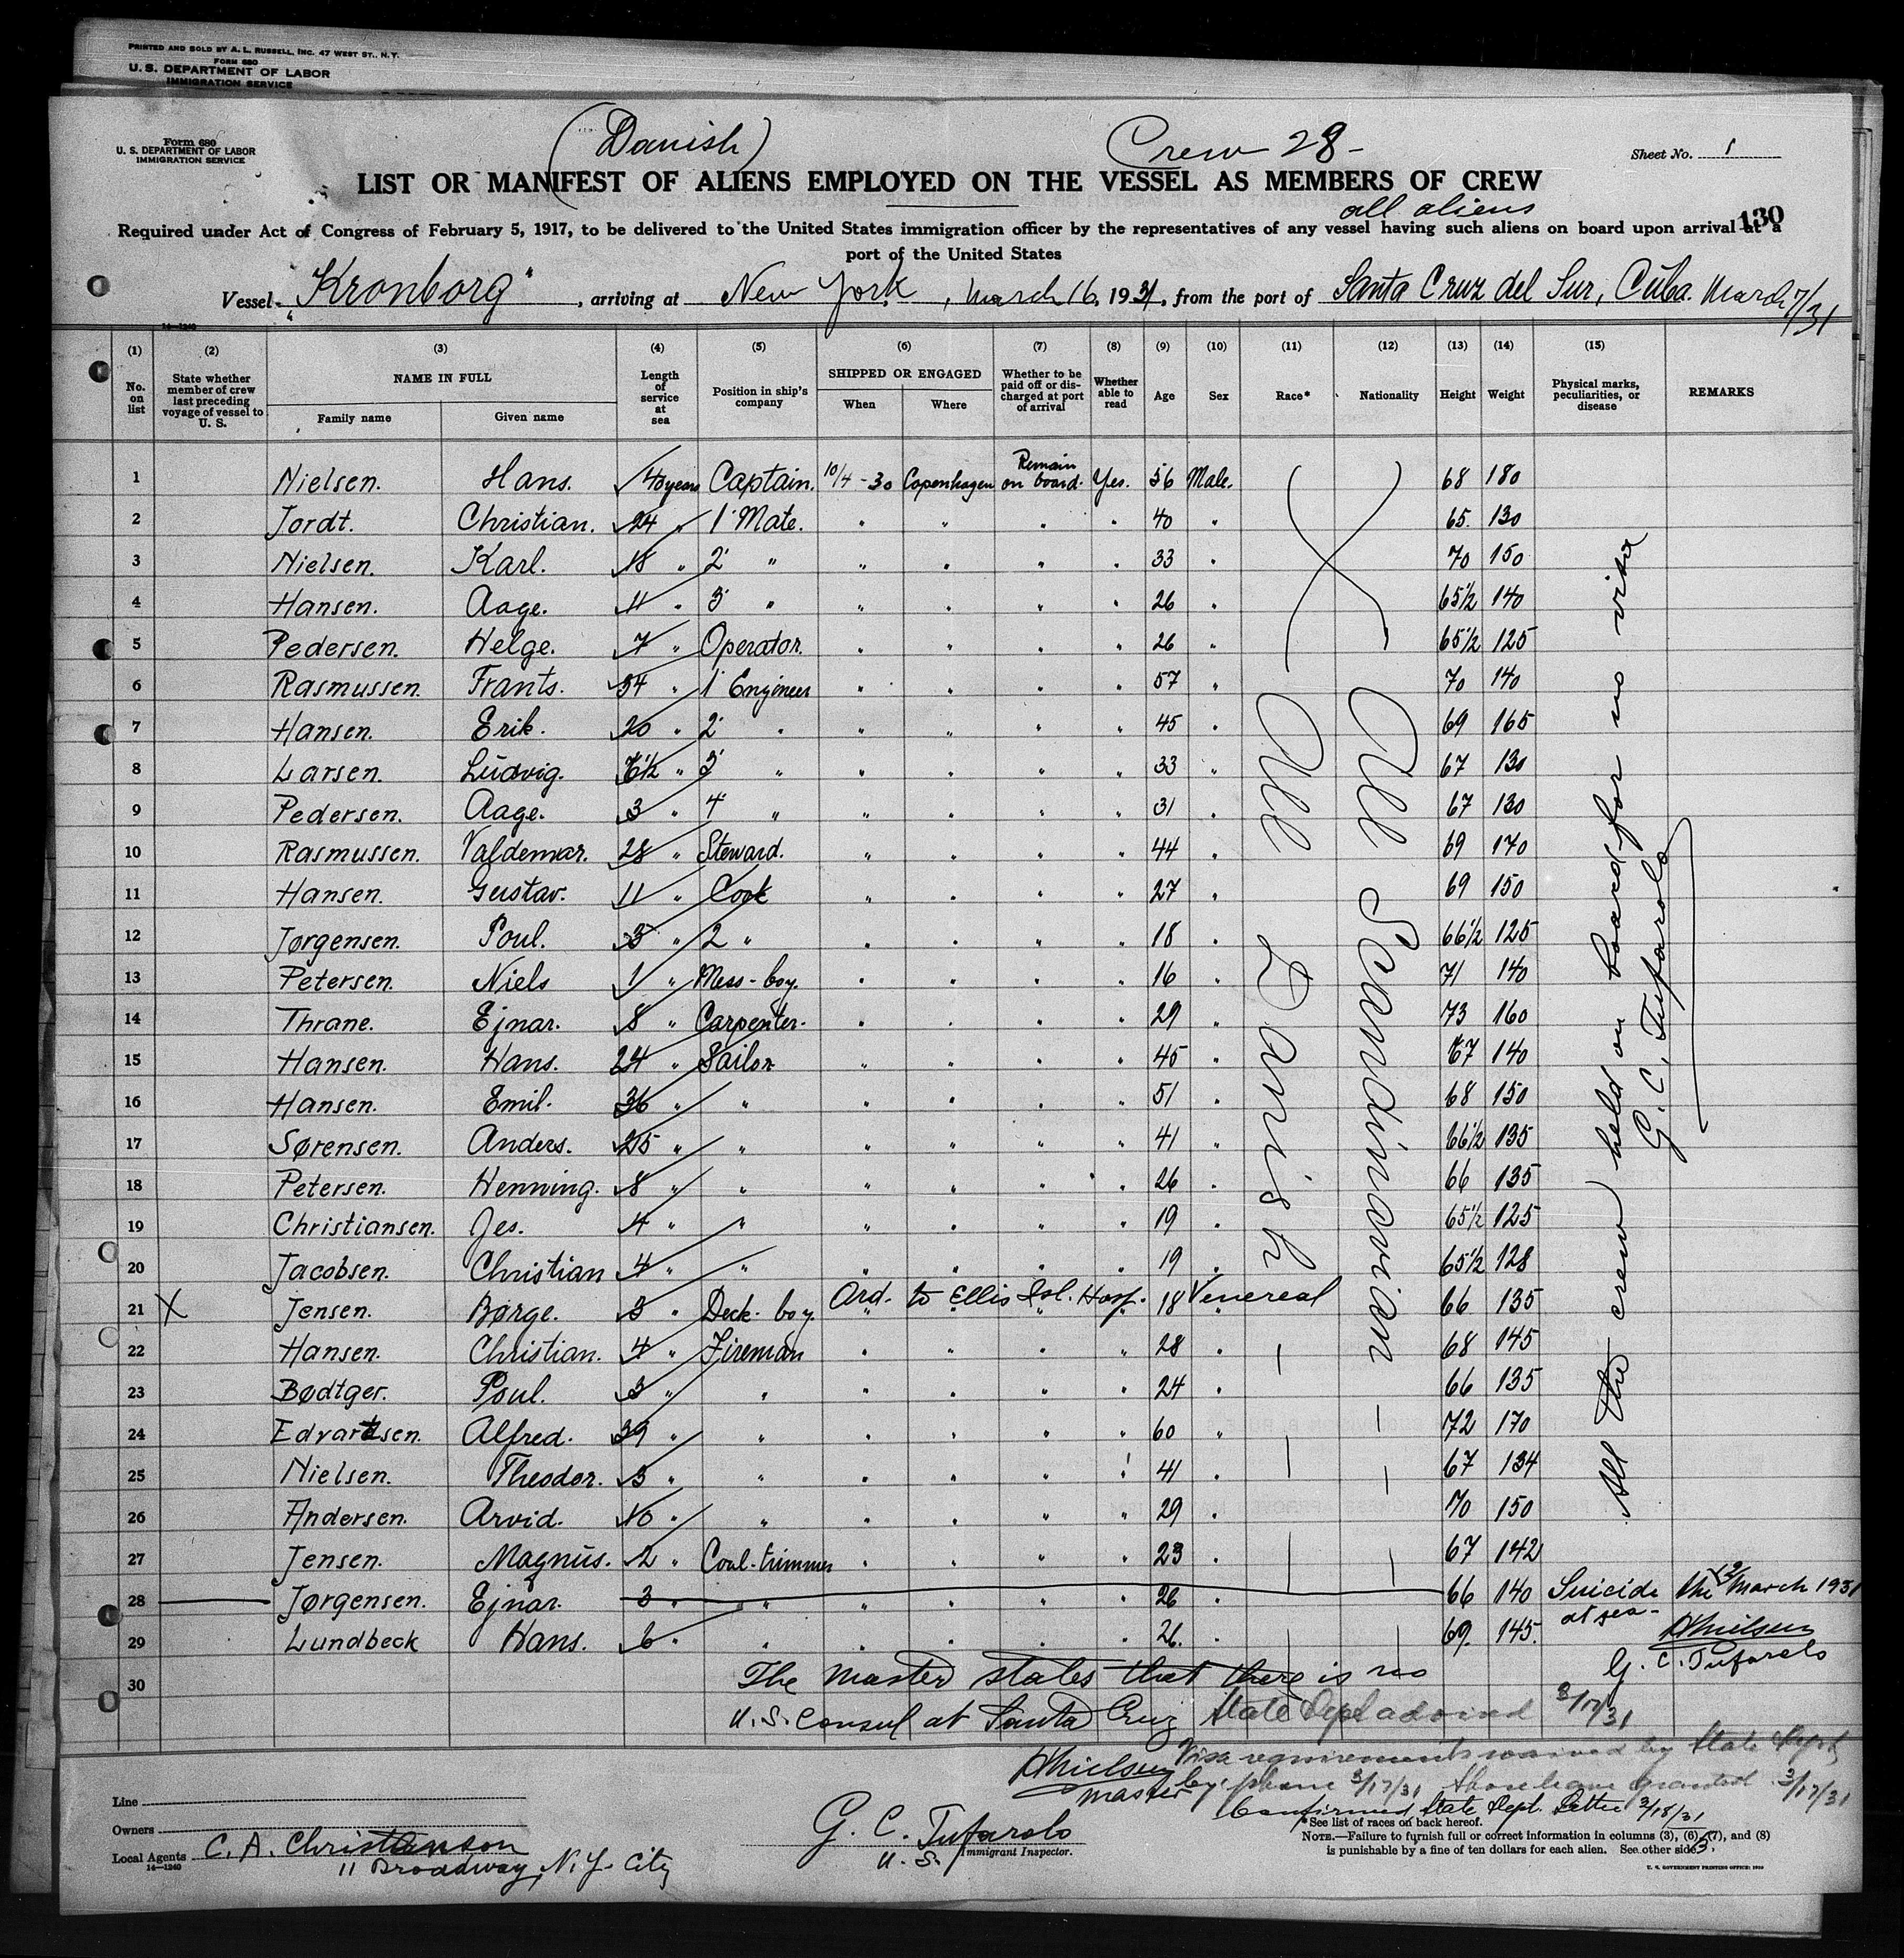 PRINTED AND SOLD BY A. L. RUSSELL, INC. 47 WEST ST., N. Y.
FORM 680
U. S. DEPARTMENT OF LABOR
IMMIGRATION SERVICE
Form 680
U. S. DEPARTMENT OF LABOR
IMMIGRATION SERVICE
(Danish)
Crew 28-
Sheet No. 1
LIST OR MANIFEST OF ALIENS EMPLOYED ON THE VESSEL AS MEMBERS OF CREW
all aliens
130
Required under Act of Congress of February 5, 1917, to be delivered to the United States immigration officer by the representatives of any vessel having such aliens on board upon arrival at a
port of the United States
Vessel "Kronborg", arriving at New York, March 16, 1931, from the port of Santa Cruz del Sur, Cuba. March 7/31
14—1240
(1) (2) (3) (4) (5) (6) (7) (8) (9) (10) (11) (12) (13) (14) (15)
No. on list
State whether member of crew last preceding voyage of vessel to U. S.
NAME IN FULL
Family name Given name
Length of service at sea
Position in ship's company
SHIPPED OR ENGAGED
When Where
Whether to be paid off or discharged at port of arrival
Whether able to read
Age Sex Race* Nationality Height Weight
Physical marks, peculiarities, or disease
REMARKS
1 Nielsen. Hans. 40 years Captain. 10/4-30 Copenhagen Remain on board. Yes. 56 Male. 68 180
2 Jordt. Christian. 24 " 1' Mate. " " " " 40 " 65. 130
3 Nielsen. Karl. 18 " 2' " " " " " 33 " 70 150
4 Hansen. Aage. 11 " 3' " " " " " 26 " 65½ 140
5 Pedersen. Helge. 7 " Operator. " " " " 26 " 65½ 125
6 Rasmussen. Frants. 34 " 1' Engineer " " " " 57 " 70 140
7 Hansen. Erik. 20 " 2' " " " " " 45 " 69 165
8 Larsen. Ludvig. 6½ " 3' " " " " " 33 " 67 130
9 Pedersen. Aage. 3 " 4' " " " " " 31 " 67 130
10 Rasmussen. Valdemar. 28 " Steward. " " " " 44 " 69 170
11 Hansen. Gustav. 11 " Cook " " " " 27 " 69 150
12 Jørgensen. Poul. 3 " 2 " " " " " 18 " 66½ 125
13 Petersen. Niels 1 " Mess-boy. " " " " 16 " 71 140
14 Thrane. Ejnar. 8 " Carpenter. " " " " 29 " 73 160
15 Hansen. Hans. 24 " Sailor " " " " 45 " 67 140
16 Hansen. Emil. 36 " " " " " " 51 " 68 150
17 Sørensen. Anders. 25 " " " " " " 41 " 66½ 135
18 Petersen. Henning. 8 " " " " " " 26 " 66 135
19 Christiansen. Jes. 4 " " " " " " 19 " 65½ 125
20 Jacobsen. Christian 4 " " " " " " 19 " 65½ 128
21 X Jensen. Børge. 3 " Deck-boy. Ord. to Ellis Isl. Hosp. 18 Venereal 66 135
22 Hansen. Christian. 4 " Fireman " " " " 28 " 68 145
23 Bødtger. Poul. 3 " " " " " " 24 " 66 135
24 Edvartsen. Alfred. 39 " " " " " " 60 " 72 170
25 Nielsen. Theodor. 3 " " " " " " 41 " 67 134
26 Andersen. Arvid. 10 " " " " " " 29 " 70 150
27 Jensen. Magnus. 2 " Coal-trimmer " " " " 23 " 67 142
28 Jørgensen. Ejnar. 3 " " " " " " 26 " 66 140 Suicide at sea- the 12 March 1931
29 Lundbeck Hans. 6 " " " " " " 26. " 69. 145.
30
All Danish
All Scandinavian
All the crew held on board for no visa
G. C. Tufarolo
HNielsen
G. C. Tufarolo
3/17/31
The Master states that there is no
U.S. Consul at Santa Cruz State Dept advised
HNielsen
Master
Visa requirements waived by State Dept
by phone 3/17/31 Shore leave granted 3/17/31
Confirmed State Dept. Letter 3/18/31
Line
Owners
Local Agents C. A. Christenson
11 Broadway, N.Y. City
14—1240
G. C. Tufarolo
U. S. Immigrant Inspector.
*See list of races on back hereof.
NOTE.—Failure to furnish full or correct information in columns (3), (6), (7), and (8)
is punishable by a fine of ten dollars for each alien. See other side.
U. S. GOVERNMENT PRINTING OFFICE: 1930